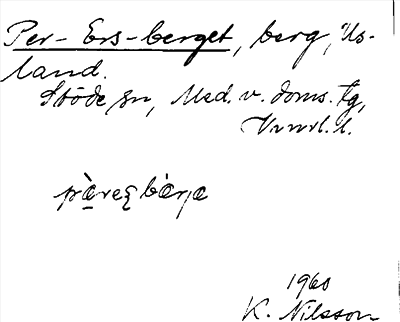 Per-Ers-berget, berg, Us-
land.
Stöde sn, Med. v. doms. tg,
Vnrl. l.
1960
K. Nilsson